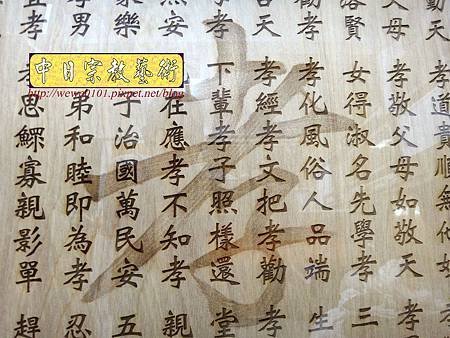 中日宗教藝術
http://wewe0101.pixnet.net/blog
孝
天 孝道貴順無他
父母 孝敬父母如敬天
賢 女得淑名先學孝 三
孝化風俗人品端 生
天 孝經孝文把孝勸 孝
下輩孝子照樣還 堂
安 在應孝不知孝 親
家樂 于治國萬民安 五
孝男 弟和睦即為孝 忍
孝 孝思鰥寡親影單